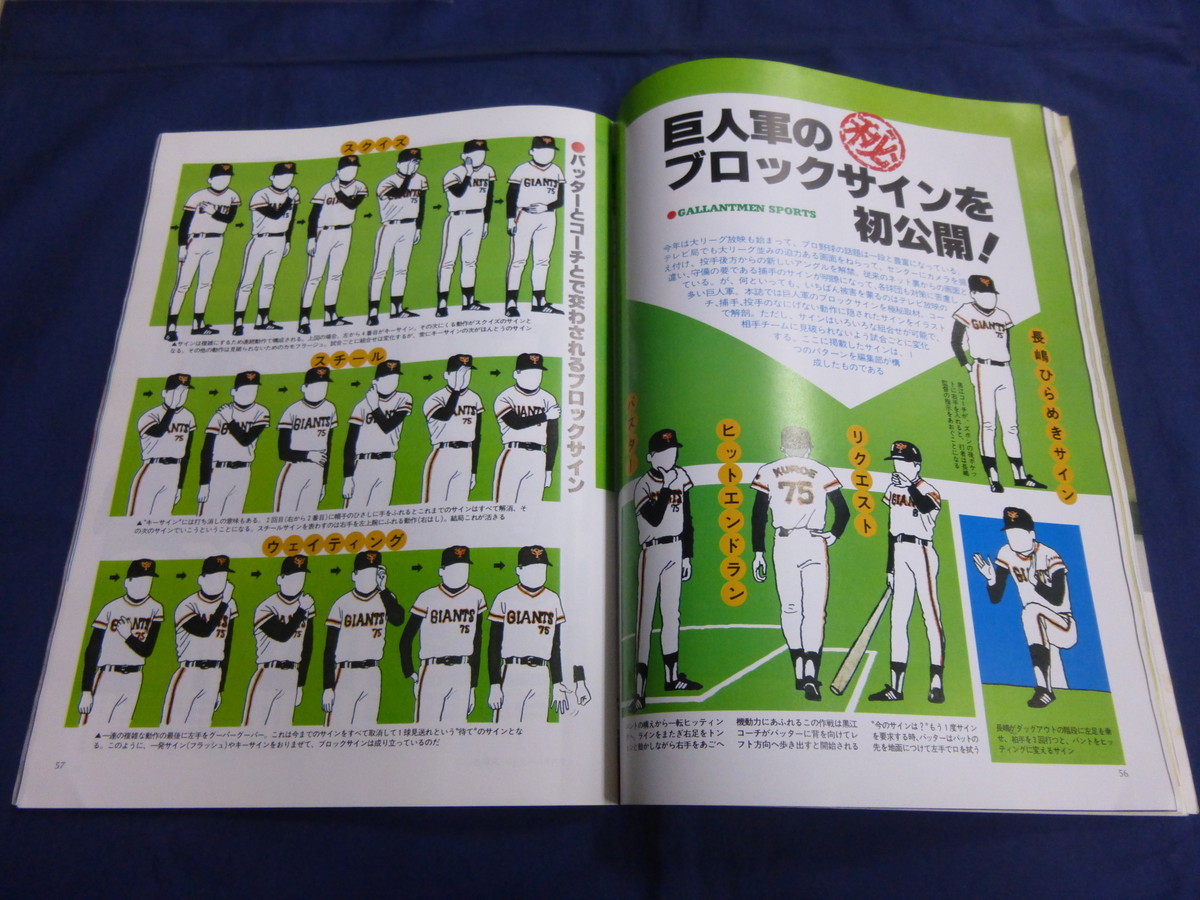 巨人軍の㊙
ブロックサインを
初公開!
●GALLANTMEN SPORTS
今年は大リーグ放映も始まって、プロ野球の話題は一段と豊富になっている。
テレビ局でも大リーグ並みの迫力ある画面をねらって、センターにカメラを据
え付け、投手後方からの新しいアングルを解禁。従来のネット裏からの画面と
違い、守備の要である捕手のサインが明瞭になって、各球団も対策に苦慮し
ている。が、何といっても、いちばん被害を蒙るのはテレビ放映の
多い巨人軍。本誌では巨人軍のブロックサインを極秘取材。コー
チ、捕手、投手のなにげない動作に隠されたサインをイラスト
で解剖。ただし、サインはいろいろな組合せが可能で、
相手チームに見破られないよう試合ごとに変化
する。ここに掲載したサインは、1
つのパターンを編集部が構
成したものである
長嶋ひらめきサイン
黒江コーチが、ズボンの後ポケッ
トに右手を入れると、打者は長嶋
監督の指示をあおぐことになる
GIANTS
バスター
ヒットエンドラン
リクエスト
KUROE
75
GIANTS
8
75
ントの構えから一転ヒッティン
へ。ラインをまたぎ右足をトン
ンと動かしながら右手をあごへ
機動力にあふれるこの作戦は黒江
コーチがバッターに背を向けてレ
フト方向へ歩き出すと開始される
"今のサインは?"もう1度サイン
を要求する時、バッターはバットの
先を地面につけて左手で口を拭う
長嶋がダッグアウトの階段に左足を乗
せ、拍手を3回打つと、バントをヒッ
ティングに変えるサイン
56
●バッターとコーチとで交わされるブロックサイン
スクイズ
GIANTS
75
▲サインは複雑にするため連続動作で構成される。上図の場合、左から4番目がキーサイン。その次にくる動作がスクイズのサインと
なる。その他の動作は見破られないためのカモフラージュ。試合ごとに組合せは変化するが、常にキーサインの次がほんとうのサイン
スチール
GIANTS
75
▲"キーサイン"には打ち消しの意味もある。2回目(右から2番目)に帽子のひさしに手をふれるとこれまでのサインはすべて解消、そ
の次のサインでいこうということになる。スチールサインを表わすのは右手を左上腕にふれる動作(右はし)。結局これが活きる
ウェイティング
GIANTS
75
▲一連の複雑な動作の最後に左手をグーパーグーパー。これは今までのサインをすべて取消して1球見送れという"待て"のサインとな
る。このように、一発サイン(フラッシュ)やキーサインをおりまぜて、ブロックサインは成り立っているのだ
57